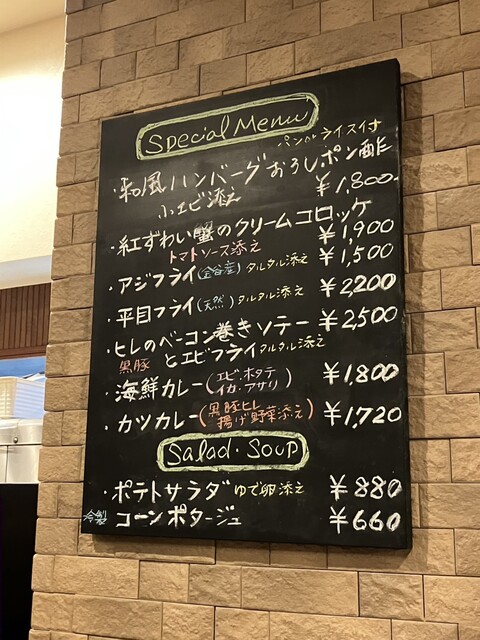 Special Menu
パンorライス付
・和風ハンバーグおろしポン酢
小エビ添え ¥1,800-
・紅ずわい蟹のクリームコロッケ
トマトソース添え ¥1,900
・アジフライ(金谷産)タルタル添え ¥1,500
・平目フライ(天然)タルタル添え ¥2,200
・ヒレのベーコン巻きソテー ¥2,500
黒豚 とエビフライ タルタル添え
・海鮮カレー(エビ・ホタテ ¥1,800
イカ・アサリ)
・カツカレー(黒豚ヒレ ¥1,720
揚げ野菜添え)
Salad・Soup
・ポテトサラダ ゆで卵添え ¥880
冷製 コーンポタージュ ¥660